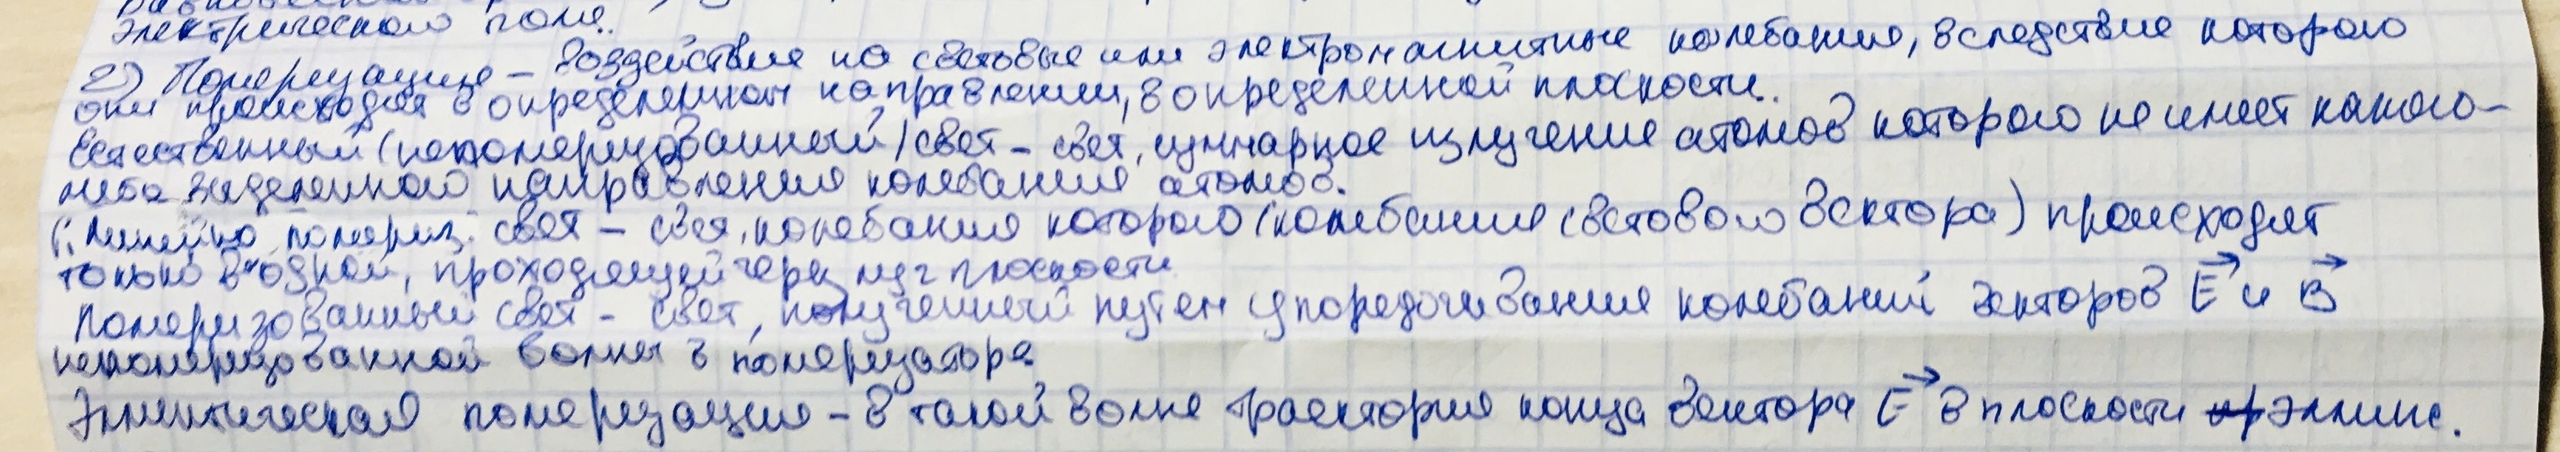 электрического поля.
2) Поляризация – воздействие на световые или электромагнитные колебания, вследствие которого
они происходят в определенном направлении, в определенной плоскости.
Естественный (неполяризованный) свет – свет, суммарное излучение атомов которого не имеет какого-
либо выделенного направления колебания атомов.
Линейно поляриз. свет – свет, колебания которого (колебания светового вектора) происходят
только в одной, проходящей через луч плоскости
Поляризованный свет – свет, полученный путем упорядочивания колебаний векторов E⃗ и B⃗
неполяризованной волны в поляризаторе
Эллиптическая поляризация – в такой волне траектория конца вектора E⃗ в плоскости эллипс.